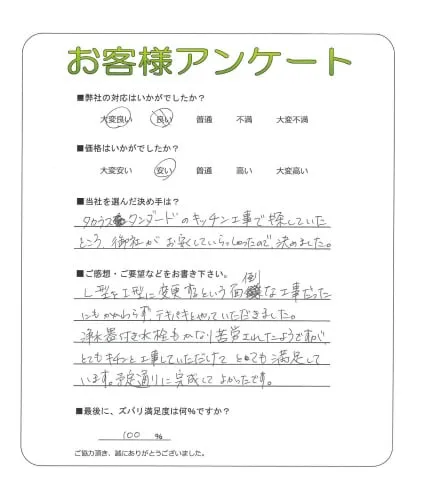 お客様アンケート
■弊社の対応はいかがでしたか？
大変良い 良い 普通 不満 大変不満
■価格はいかがでしたか？
大変安い 安い 普通 高い 大変高い
■当社を選んだ決め手は？
タカラスタンダードのキッチン工事で探していた
ところ、御社がお安くしていらっしゃったので、決めました。
■ご感想・ご要望などをお書き下さい。
L型をI型に変更するという面倒な工事だった
にもかかわらず、テキパキとやっていただきました。
浄水器付き水栓もかなり苦労されたようですが、
とてもキチンと工事していただけてとても満足して
います。予定通りに完成してよかったです。
■最後に、ズバリ満足度は何％ですか？
100 %
ご協力頂き、誠にありがとうございました。